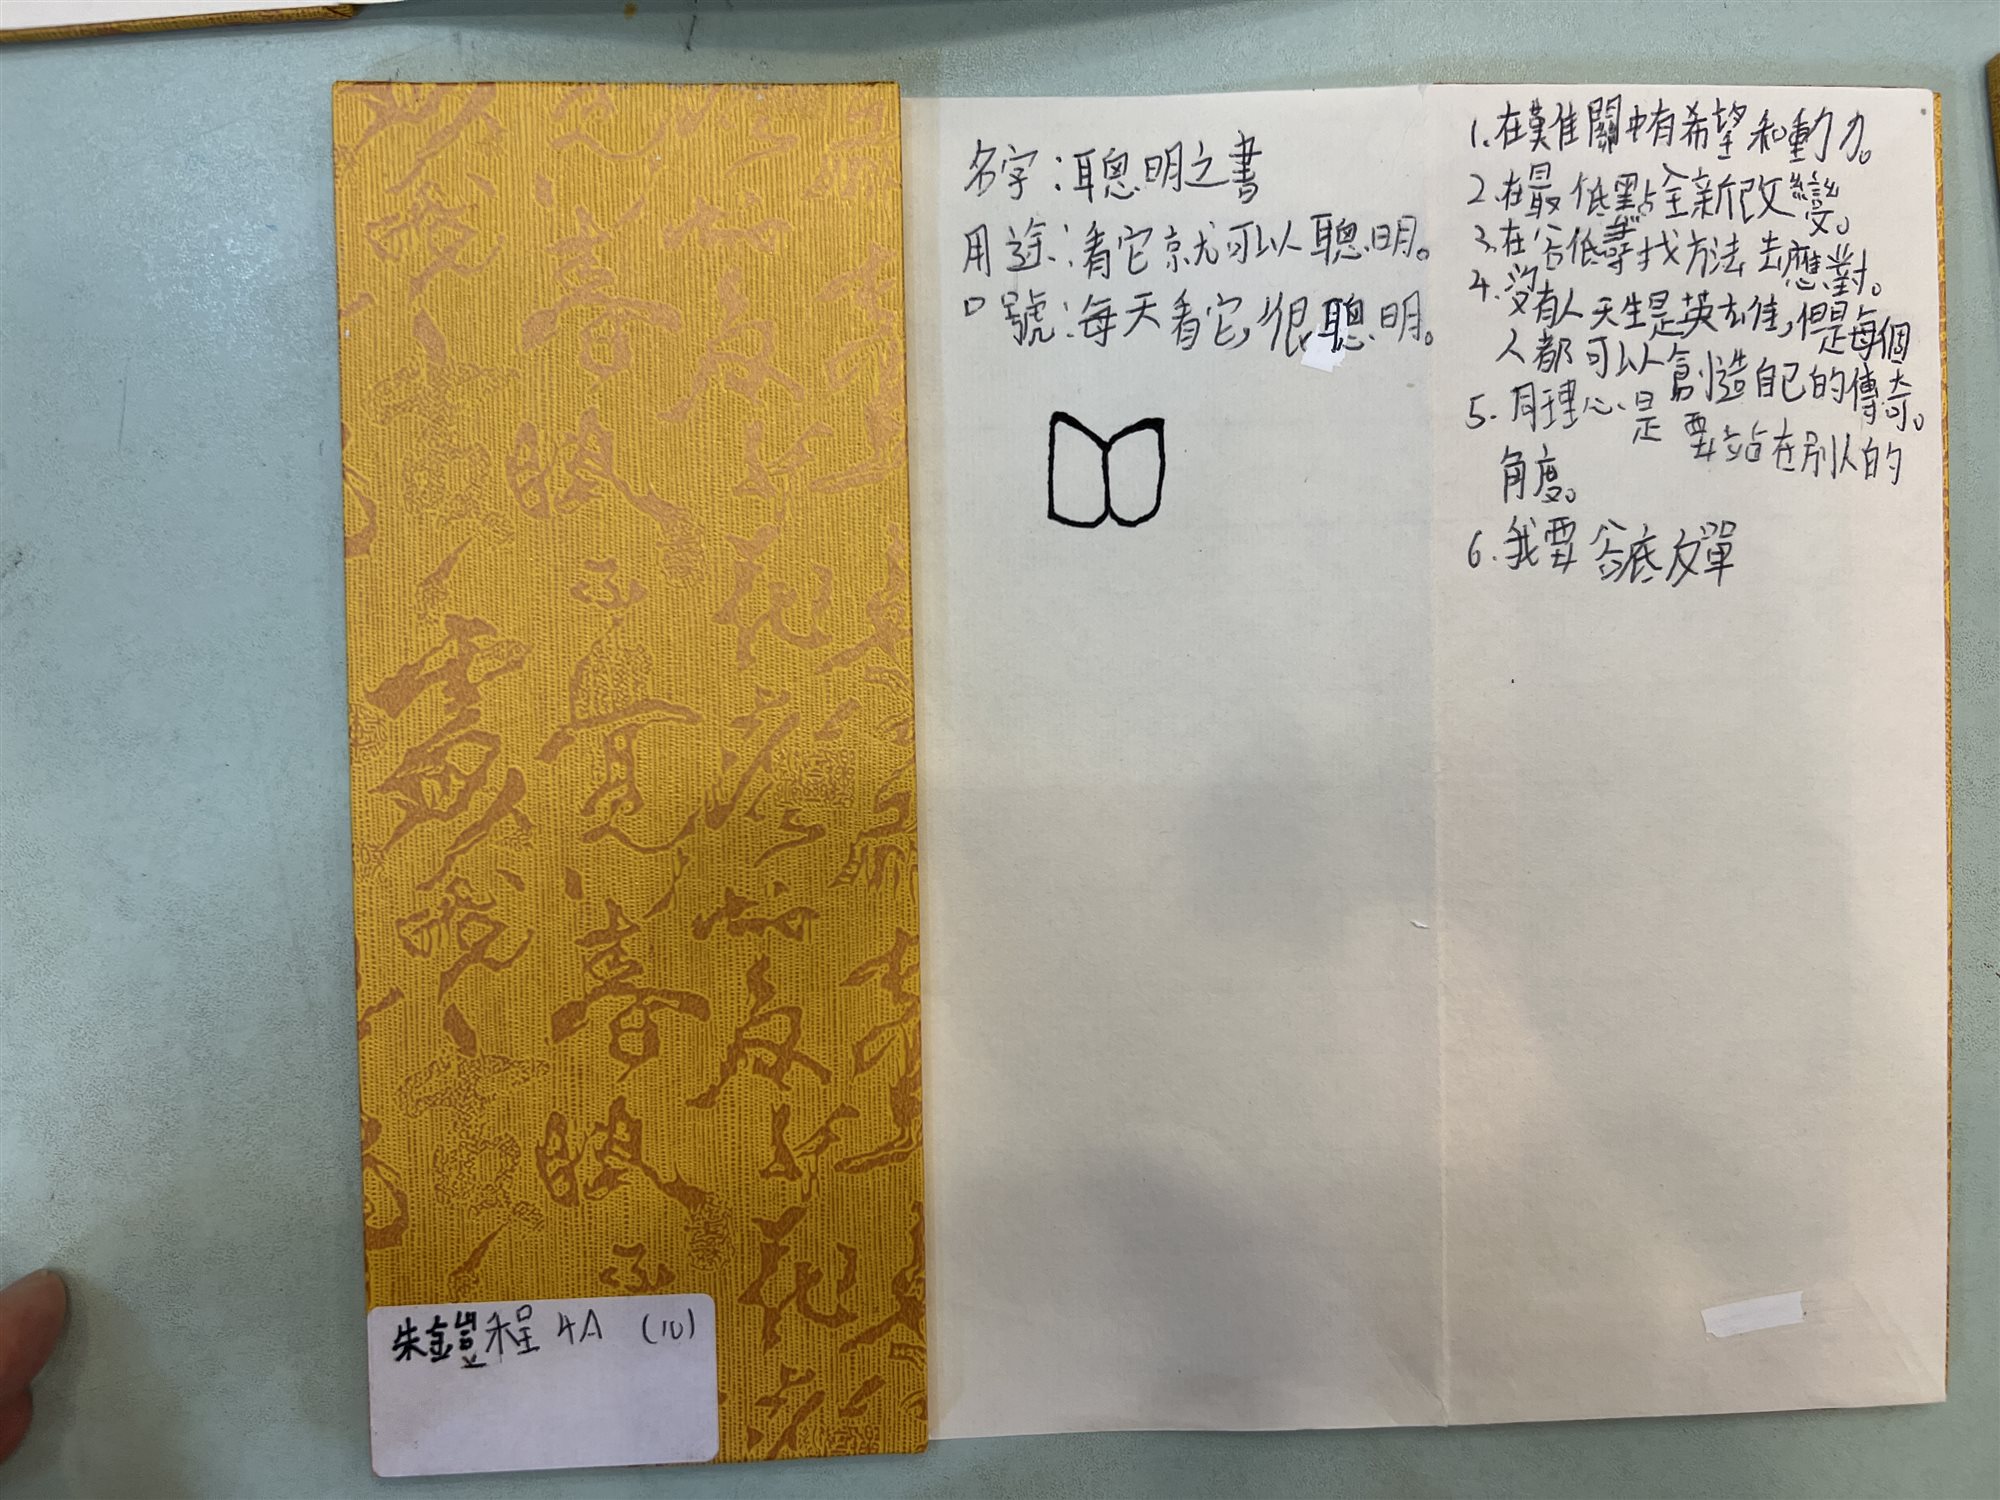 名字：聰明之書
用途：看它就可以聰明。
口號：每天看它，很聰明。
1. 在難關中有希望和動力。
2. 在最低點全新改變。
3. 在谷低尋找方法去應對。
4. 沒有人天生是英雄，但是每個
人都可以創造自己的傳奇。
5. 同理心是要站在別人的
角度。
6. 我要谷底反單
朱鎧程 4A (10)